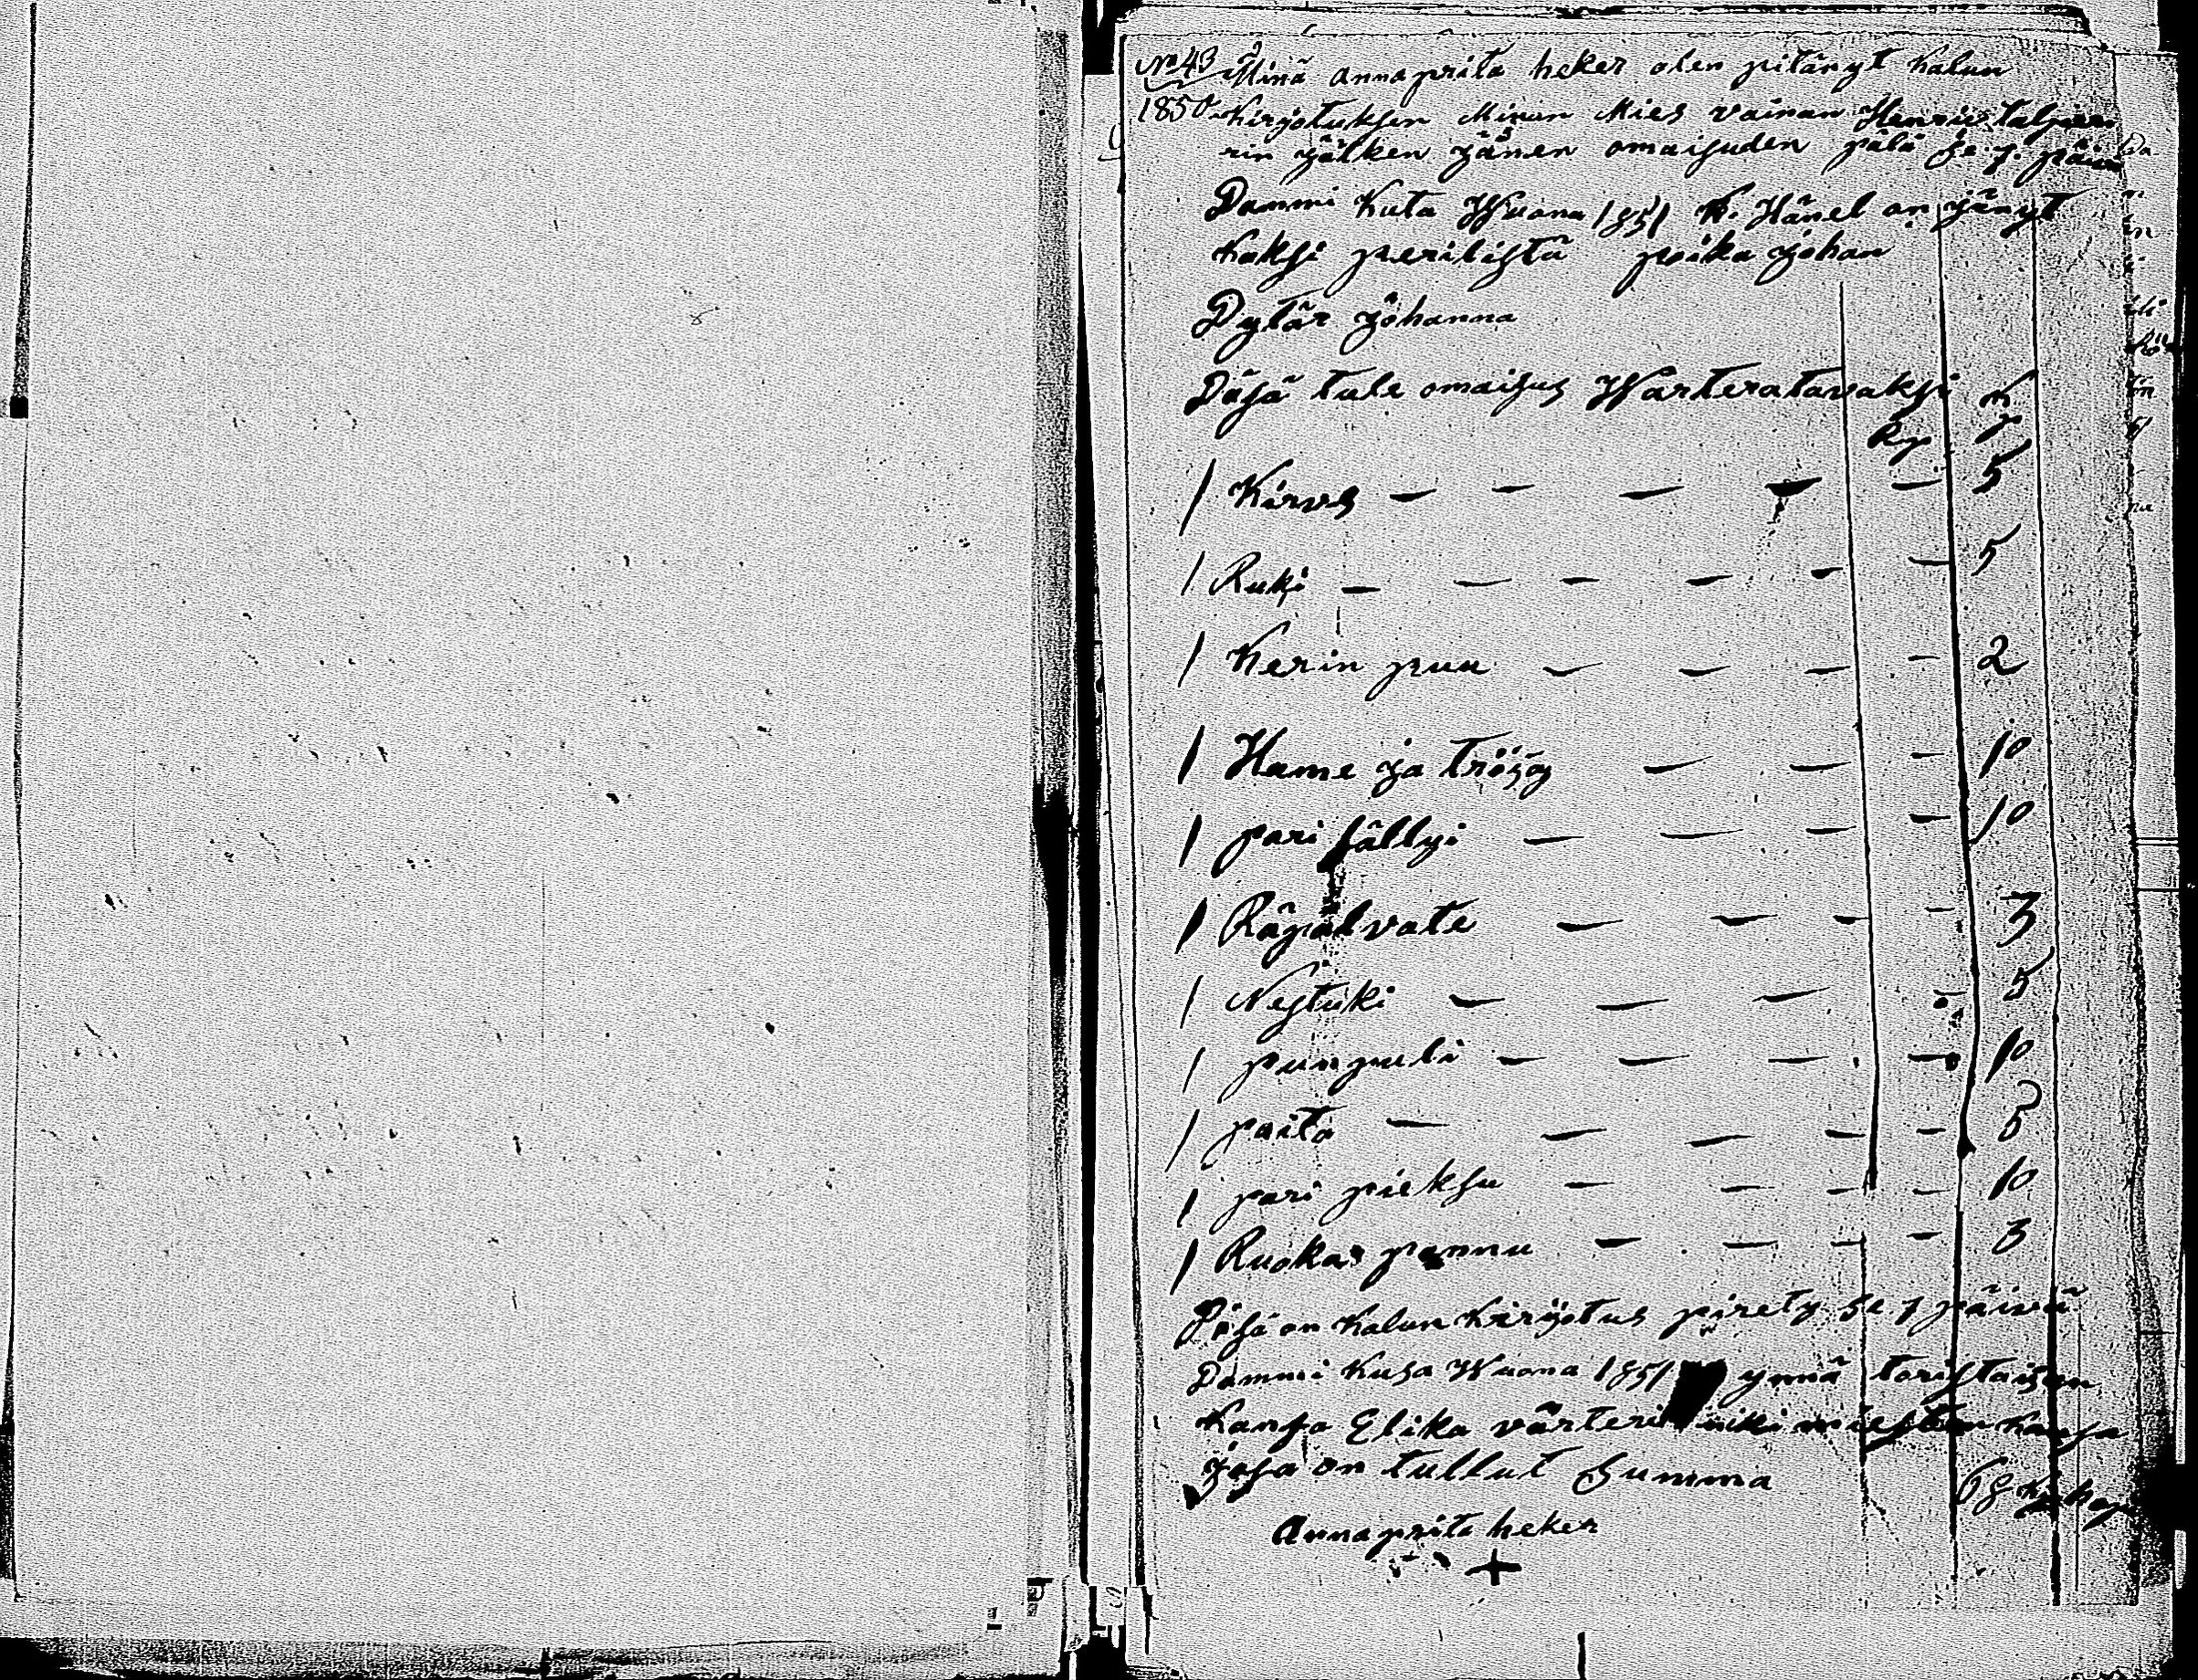 No 43 Minä annaprita heker olen pitänyt kalun
1850 Kirjotuksen Minun Mies vainan Henric
rin jälken jänen omaisuden pälä se 7. päivä
Dammi Kuta Wuona 1851 K. Hänel on jänyt
kaksi perilistä poika johan
Dytär johanna
Däsä tule omaisus Warteratavaksi
Rp K
1 Kirves — — — — — 5
1 Ruki — — — — — — 5
1 Kerin puu — — — — 2
1 Hame ja tröijy — — — 10
1 pari fällyi — — — — 10
1 Räpäl vate — — — — 3
1 Nestuki — — — — 5
1 punpuli — — — — 10
1 paita — — — — — 5
1 pari pieksu — — — — 10
1 Ruokas pannu — — — — 3
Däsä on kalun kirjotus pirety se 7 päivä
Dammi Kusa Wuona 1851 ynnä toristaisen
Kansa Elika värteri miesten kansa
josa on tullut Summa 68
Annaprita heker
+